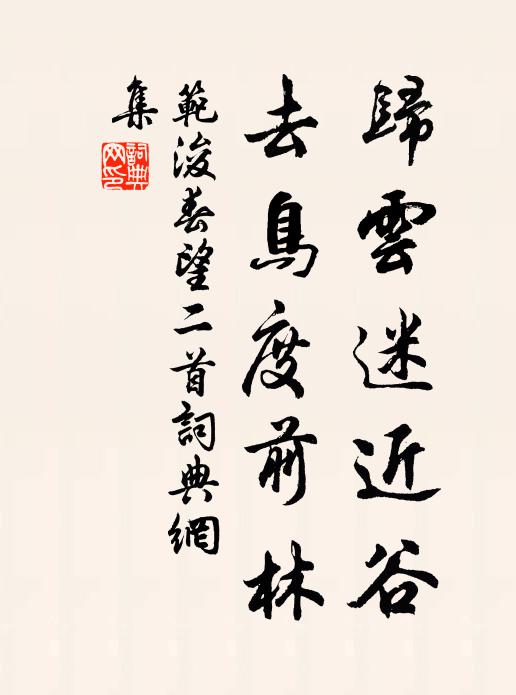 歸雲迷近谷
去鳥度前林
範浚春望二首詞典網
集
詞典網印